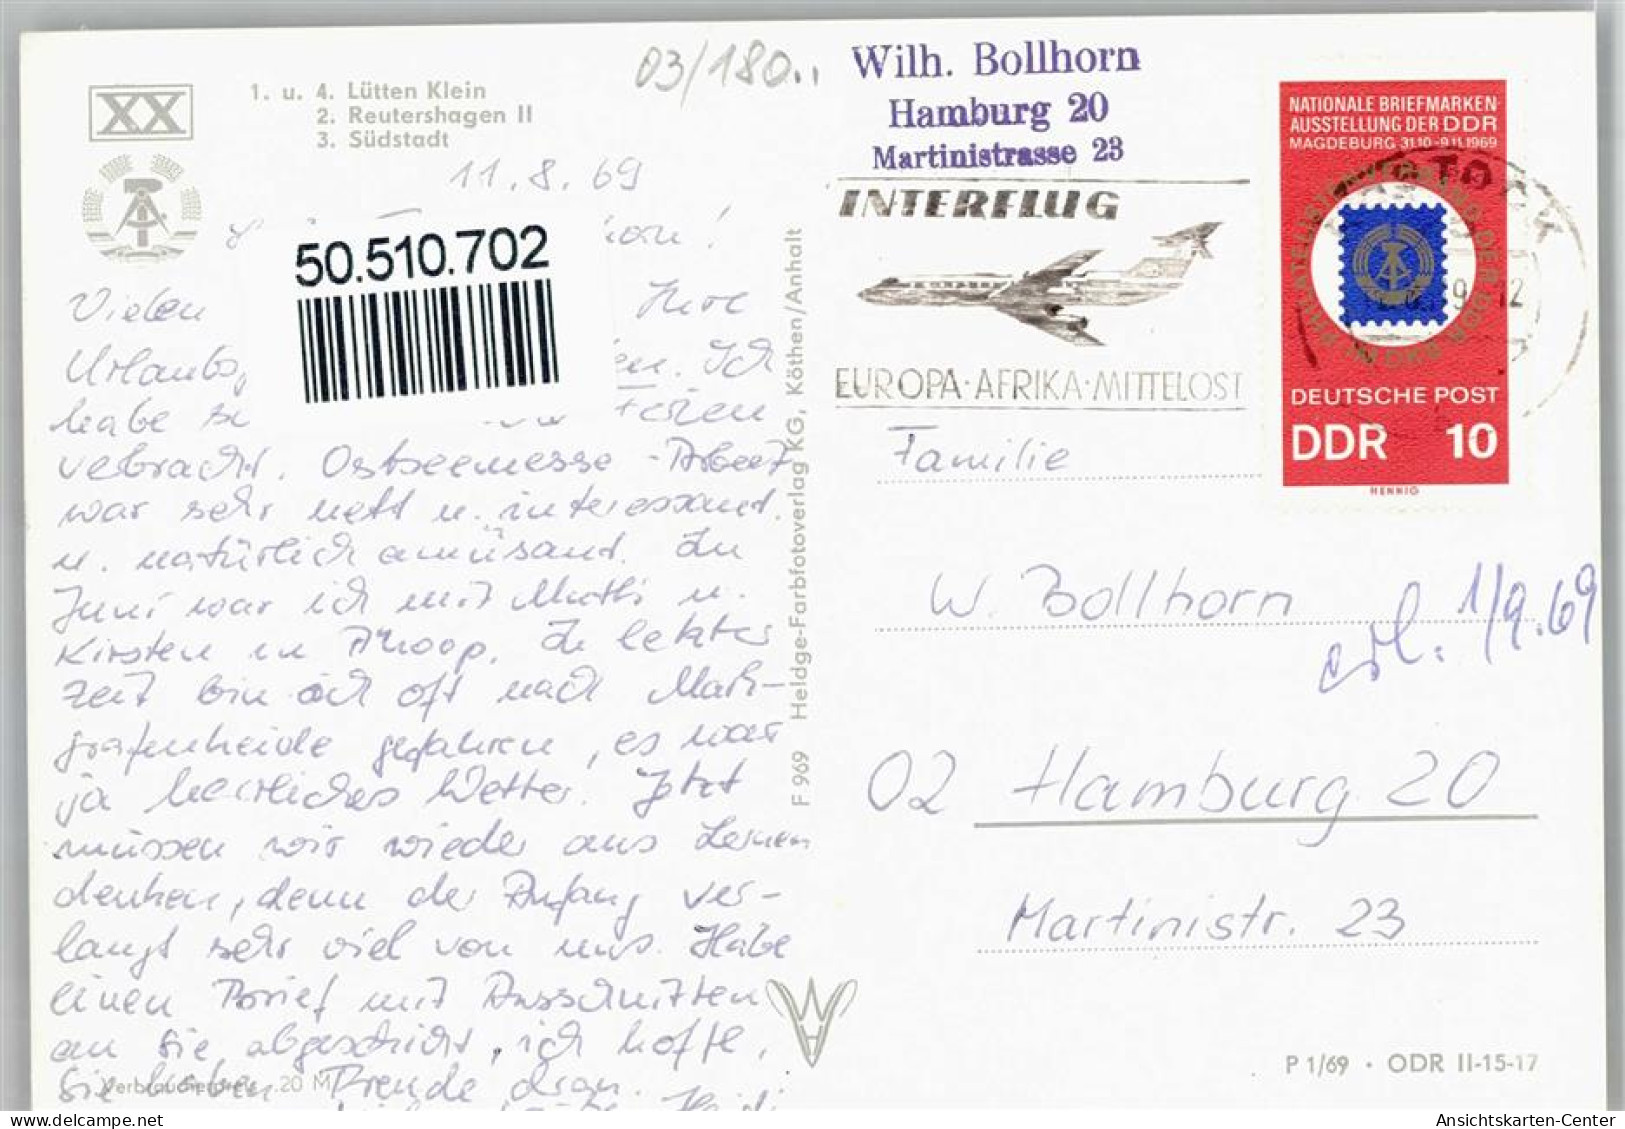 XX
1. u. 4. Lütten Klein
2. Reutershagen II
3. Südstadt
03/180..
11. 8. 69
50.510.702
Vielen Ihre
Urlaubs Ich
habe Ferien
verbracht. Ostseemesse - Arbeit
war sehr nett u. interessant.
u. natürlich amüsant. Im
Juni war ich mit Mutti u.
Kirsten in Ahoop. In letzter
Zeit bin ich oft nach Mark-
grafenheide gefahren, es war
ja herrliches Wetter. Jetzt
müssen wir wieder ans Lernen
denken, denn der Anfang ver-
langt sehr viel von uns. Habe
einen Brief mit Ausschnitten
an Sie abgeschickt, ich hoffe,
Sie haben Freude dran.
Heidi
Verbraucherpreis -.20 M
F 969 Heldge-Farbfotoverlag KG, Köthen/Anhalt
Wilh. Bollhorn
Hamburg 20
Martinistrasse 23
INTERFLUG
EUROPA·AFRIKA·MITTELOST
NATIONALE BRIEFMARKEN-
AUSSTELLUNG DER DDR
MAGDEBURG 31.10.-9.11.1969
DEUTSCHE POST
DDR 10
HENNIG
Familie
W. Bollhorn
erl. 1/9.69
02 Hamburg 20
Martinistr. 23
P 1/69 · ODR II-15-17
Ansichtskarten-Center